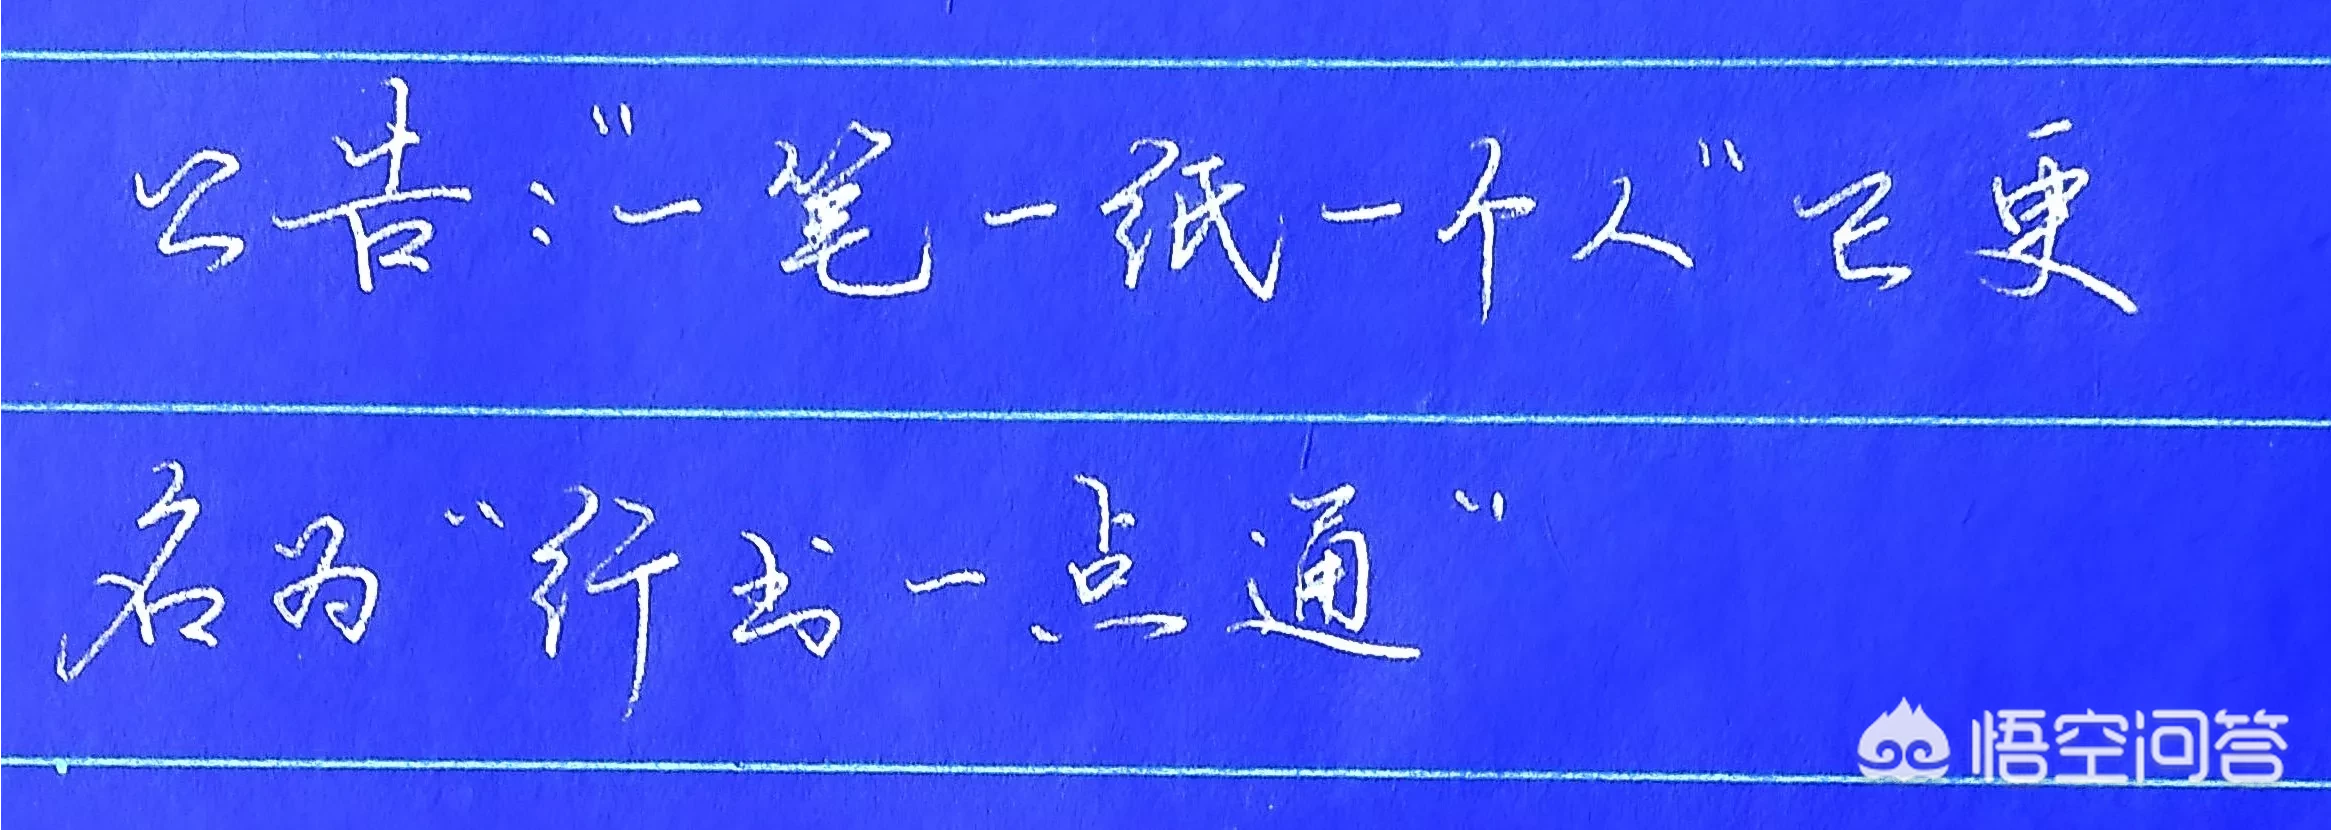 公告："一笔一纸一个人"已更
名为"行书一点通"
悟空问答